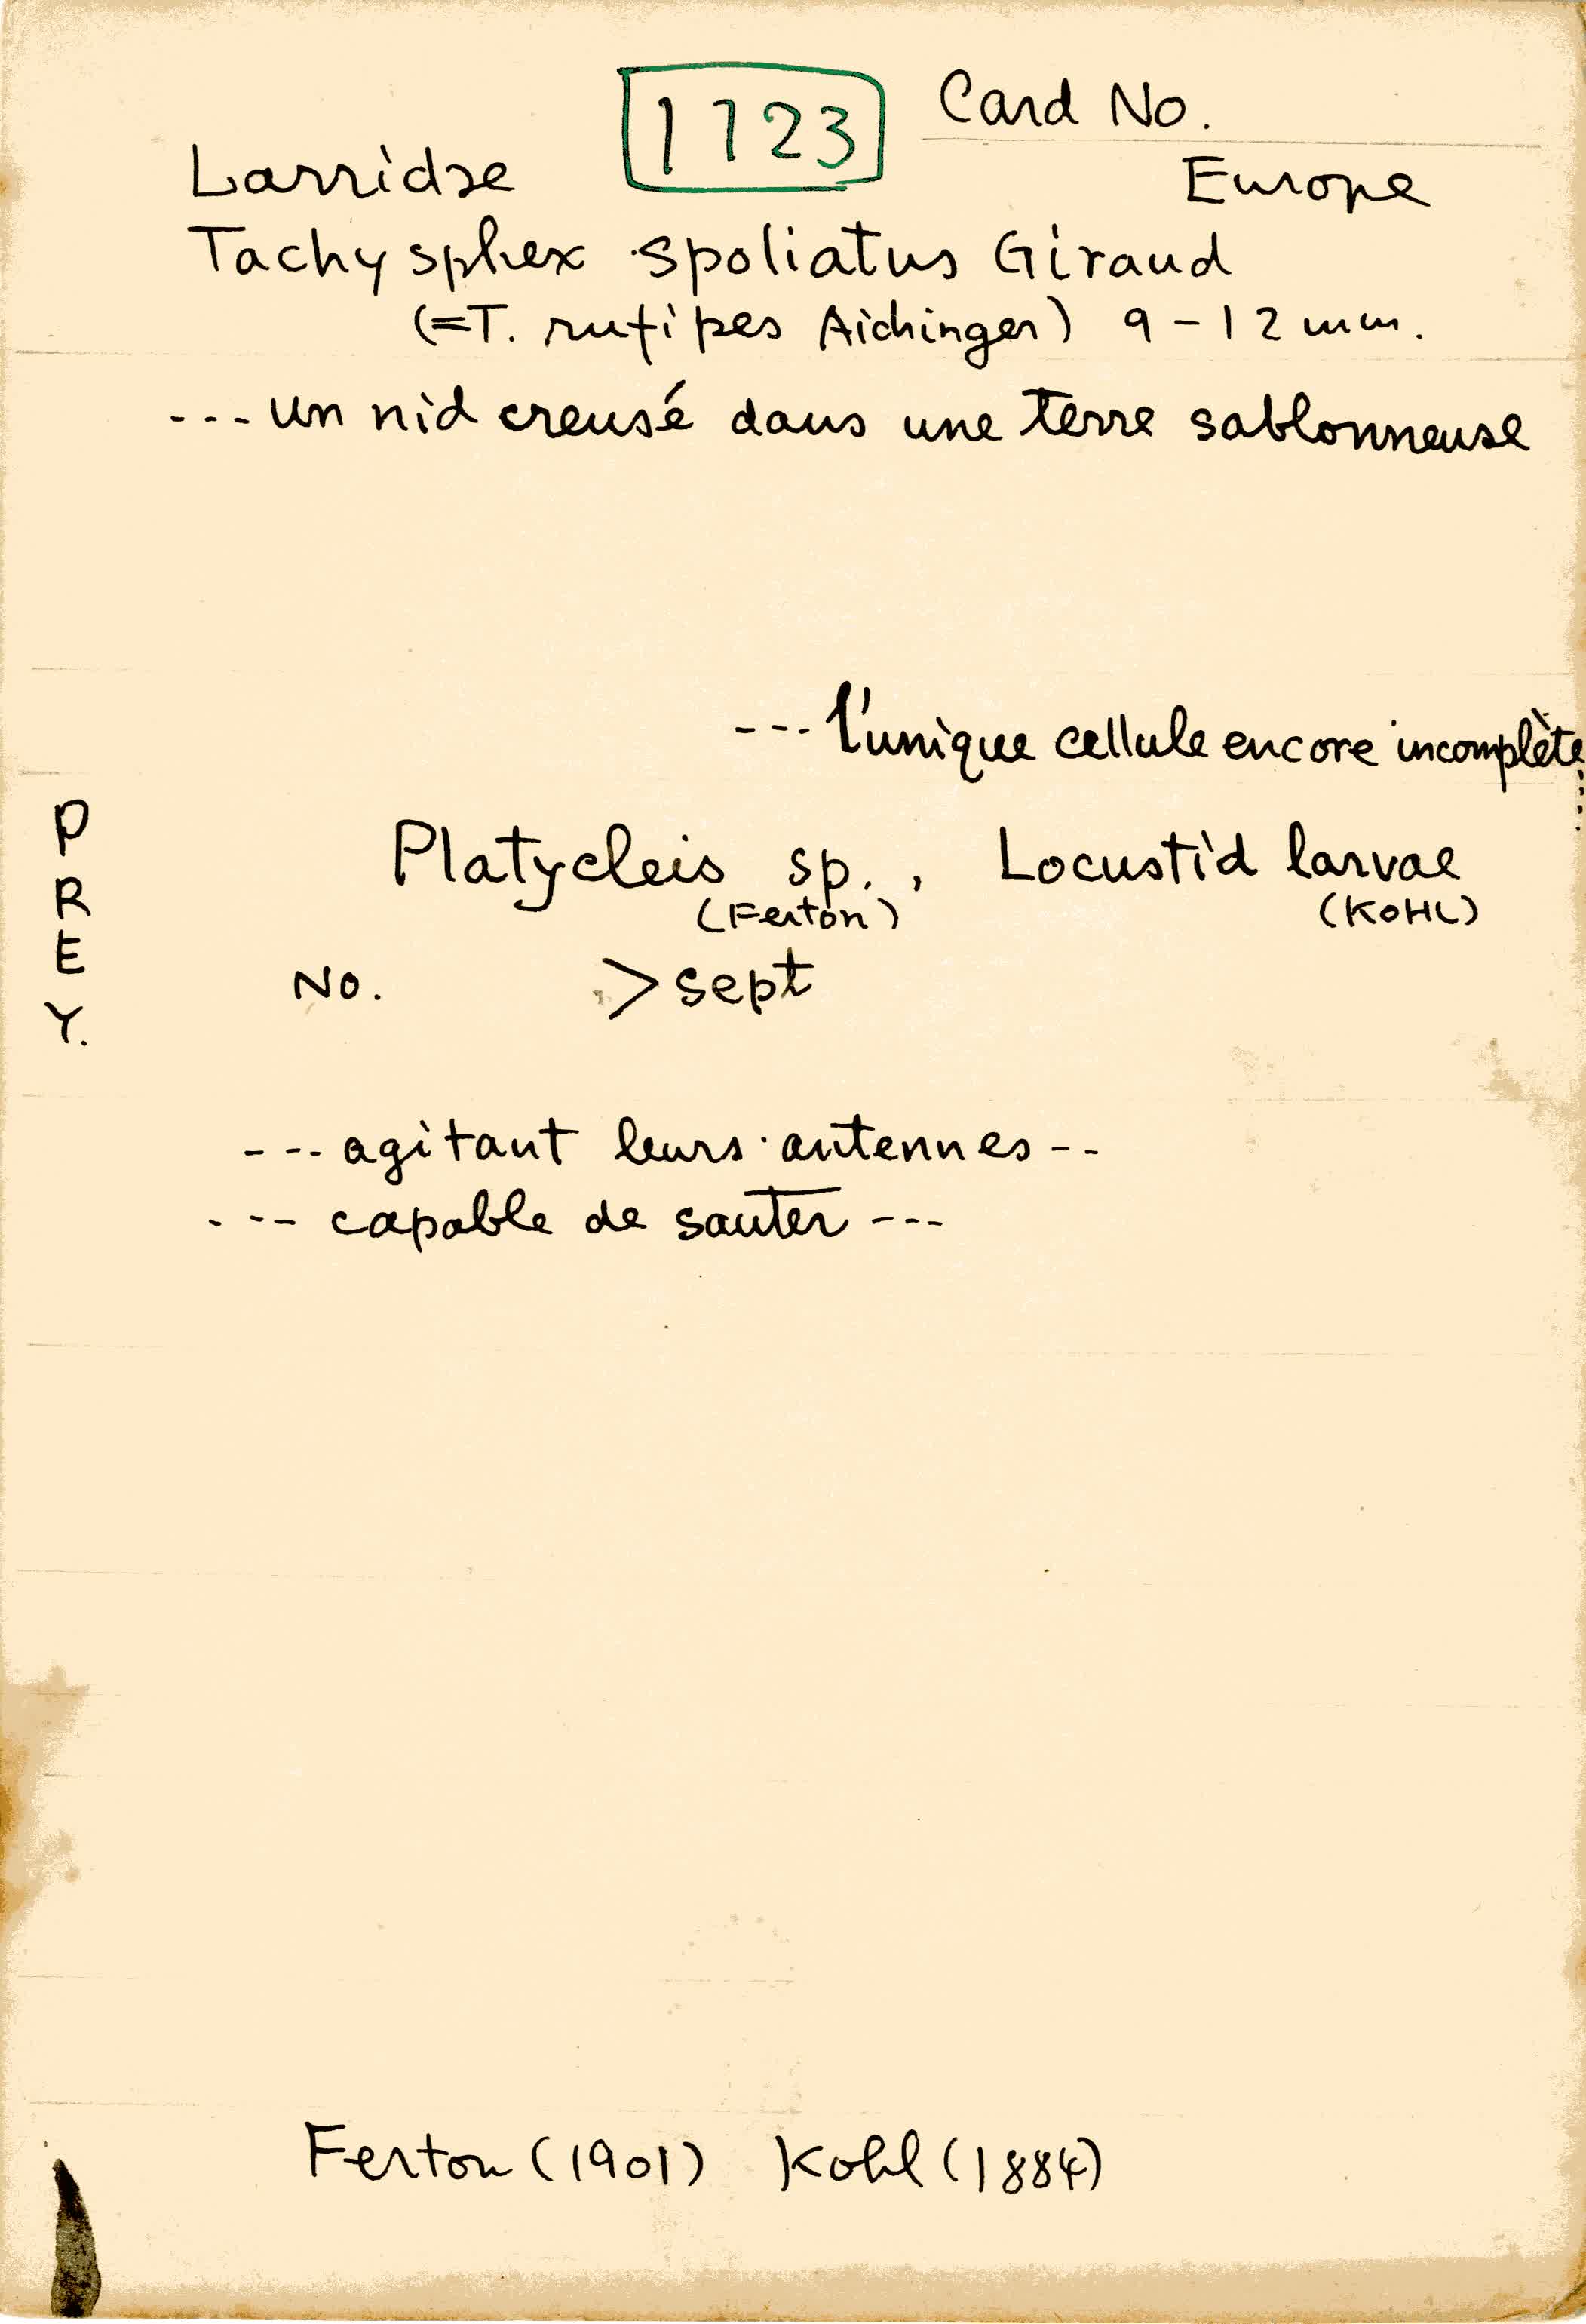 1723 Card No.
Larridae Europe
Tachysphex spoliatus Giraud
(=T. rufipes Aichinger) 9-12 mm.
--- un nid creusé dans une terre sablonneuse
--- l'unique cellule encore incomplète...
PREY.
Platycleis sp., Locustid larvae
(Ferton) (KOHL)
No. >sept
--- agitant leurs antennes --
--- capable de sauter ---
Ferton (1901) Kohl (1884)